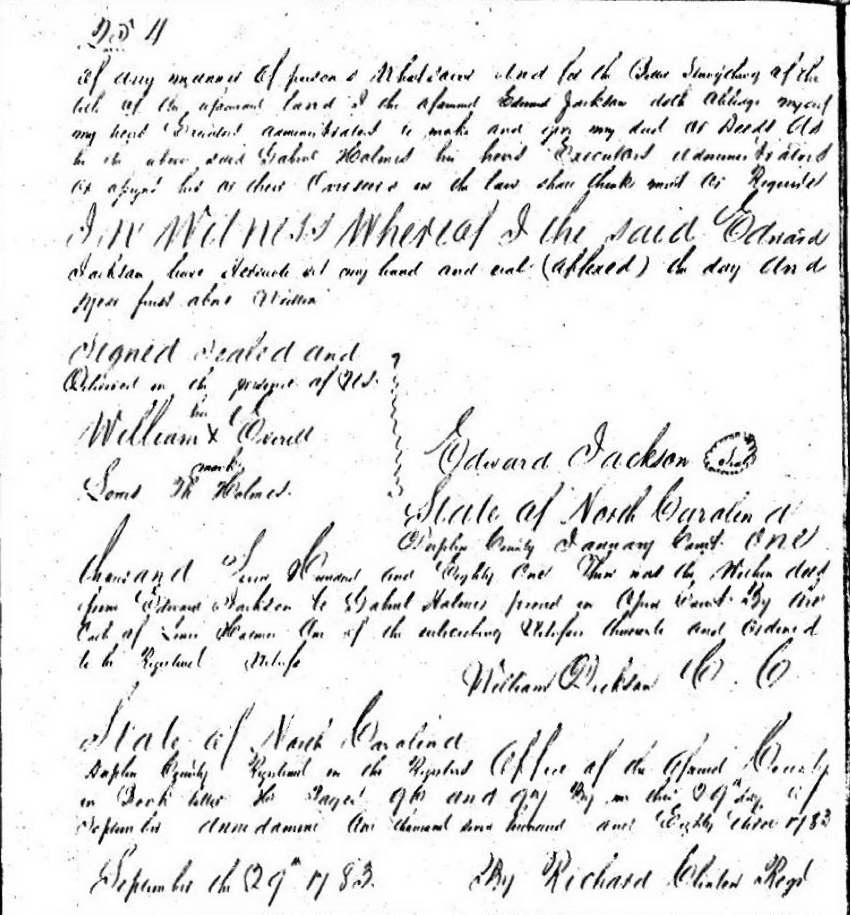 No 4
of any manner of persons Whatsoever And for the Better of the
title of the aforesaid land I the aforesaid Edward Jackson doth oblidge myself
my heirs Executors administrators to make and my deed or Deeds As
he the above said Gabriel Holmes his heirs Executors administrators
or assigns his or their in the law shall think most or Required
In Witness Whereof I the said Edward
Jackson have hereunto set my hand and seal (affixed) the day And
year first above Written
Signed Sealed and
Delivered in the presence of Us
his
William X Everett
mark
Lewis Holmes
Edward Jackson Seal
State of North Carolina
Duplin County January Court One
thousand Seven Hundred and Eighty One Then was the Within deed
from Edward Jackson to Gabriel Holmes proved in Open Court By the
Oath of Lewis Holmes One of the subscribing Witnesses thereunto and Ordered
to be Registered Witness
William Dickson C. C.
State of North Carolina
Duplin County Registered in the Registers Office of the Aforesaid County
in Book letter Pages and By me this 29th day of
September annodomini One thousand seven hundred and Eighty three 1783
September the 29th 1783 By Richard Clinton Regr